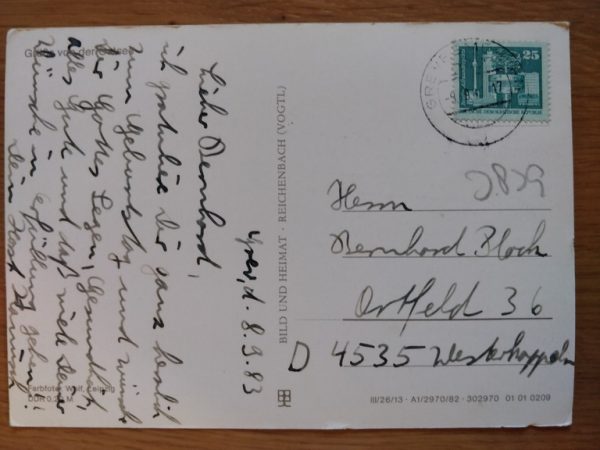 Grüße von der Ostsee
Grev, d. 8.9.83
Lieber Bernhard,
ich gratuliere Dir ganz herzlich
zum Geburtstag und wünsche
Dir Gottes Segen, Gesundheit,
alles Gute und daß viele Deiner
Wünsche in Erfüllung gehen!
Dein Horst
Farbfoto: Wolf, Leipzig
DDR 0.20 M
BILD UND HEIMAT · REICHENBACH (VOGTL)
25
GREV
DEUTSCHE DEMOKRATISCHE REPUBLIK
Herrn
Bernhard Bloch
Ortfeld 36
D 4535 Westerkappeln
III/26/13 · A1/2970/82 · 302970 01 01 0209